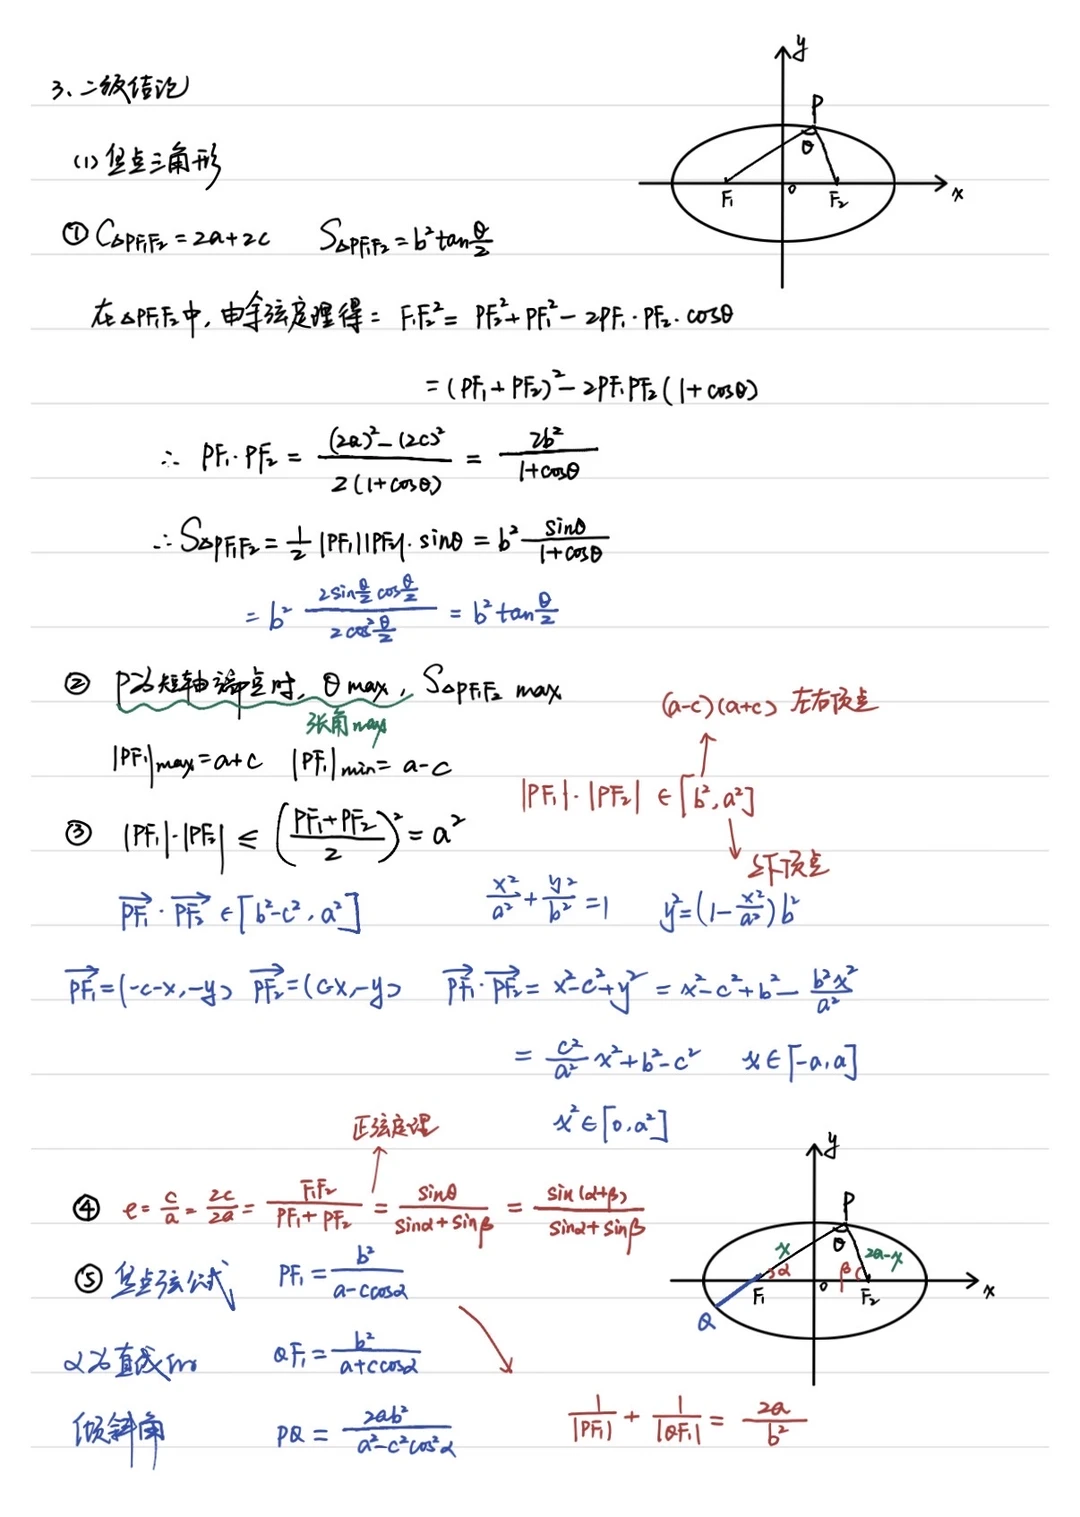 3、二级结论
(1) 焦点三角形
① C△PF₁F₂ = 2a+2c S△PF₁F₂ = b² tan θ/2
在△PF₁F₂中, 由余弦定理得: F₁F₂² = PF₂² + PF₁² - 2PF₁·PF₂·cosθ
= (PF₁+PF₂)² - 2PF₁PF₂(1+cosθ)
∴ PF₁·PF₂ = ((2a)²-(2c)²)/(2(1+cosθ)) = 2b²/(1+cosθ)
∴ S△PF₁F₂ = 1/2 |PF₁||PF₂|·sinθ = b² sinθ/(1+cosθ)
= b² (2sin θ/2 cos θ/2)/(2cos² θ/2) = b² tan θ/2
② P为短轴端点时, θ max, S△PF₁F₂ max
张角max
(a-c)(a+c) 左右顶点
|PF₁|max = a+c |PF₁|min = a-c
|PF₁|·|PF₂| ∈ [b², a²]
上下顶点
③ |PF₁|·|PF₂| ≤ ((PF₁+PF₂)/2)² = a²
PF₁·PF₂ ∈ [b²-c², a²] x²/a² + y²/b² = 1 y² = (1-x²/a²)b²
PF₁ = (-c-x, -y) PF₂ = (c-x, -y) PF₁·PF₂ = x²-c²+y² = x²-c²+b² - b²x²/a²
= c²/a² x² + b²-c² x ∈ [-a, a]
x² ∈ [0, a²]
正弦定理
④ e = c/a = 2c/2a = F₁F₂/(PF₁+PF₂) = sinθ/(sinα+sinβ) = sin(α+β)/(sinα+sinβ)
⑤ 焦点弦公式 PF₁ = b²/(a-c cosα)
α为直线的 QF₁ = b²/(a+c cosα)
倾斜角 PQ = 2ab²/(a²-c²cos²α)
1/|PF₁| + 1/|QF₁| = 2a/b²
y
P
θ
F₁ 0 F₂ x
y
P
x θ 2a-x
α β
F₁ 0 F₂ x
Q